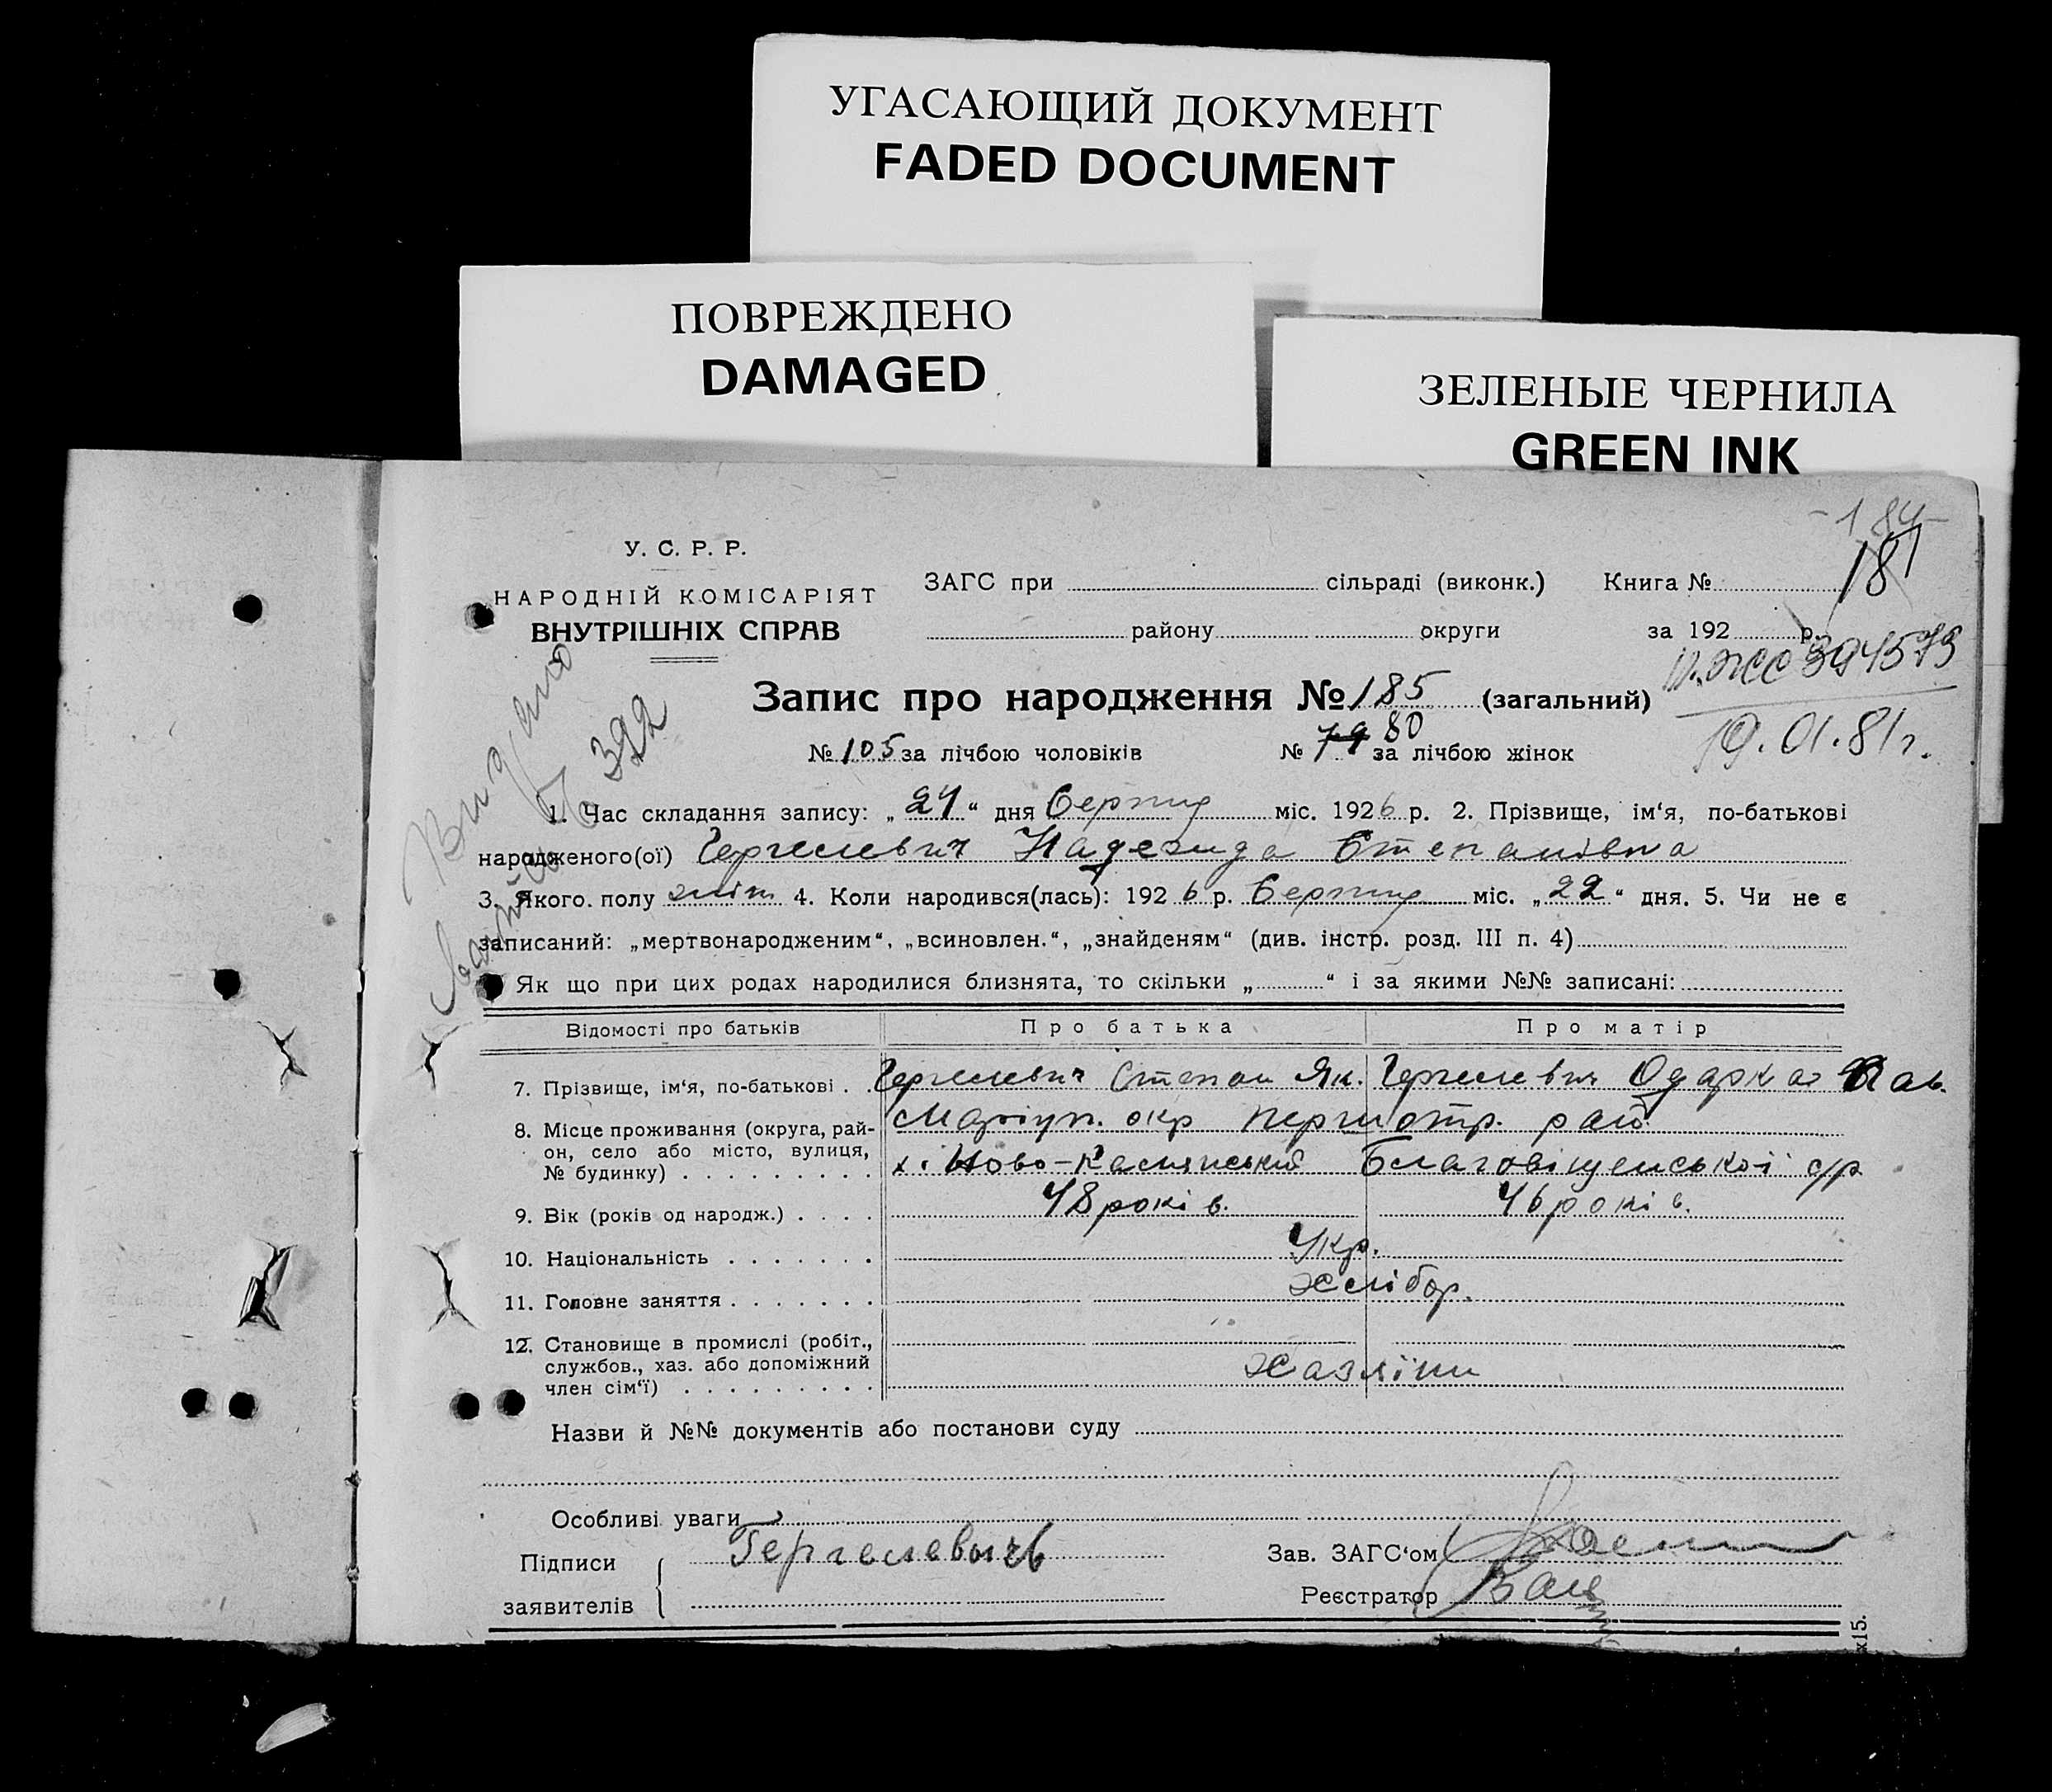 УГАСАЮЩИЙ ДОКУМЕНТ
FADED DOCUMENT
ПОВРЕЖДЕНО
DAMAGED
ЗЕЛЕНЫЕ ЧЕРНИЛА
GREEN INK
-184-
181
У. С. Р. Р.
НАРОДНІЙ КОМІСАРІЯТ
ВНУТРІШНІХ СПРАВ
ЗАГС при сільраді (виконк.) Книга №
району округи за 192 р.
394573
19.01.81г.
Запис про народження № 185 (загальний)
№ 105 за лічбою чоловіків № 79 80 за лічбою жінок
392
1. Час складання запису: „24“ дня Серпня міс. 1926 р. 2. Прізвище, ім‘я, по-батькові
народженого(ої) Гергелевич Надежида Степанівна
3. Якого полу жін 4. Коли народився(лась): 1926 р. Серпня міс. „22“ дня. 5. Чи не є
записаний: „мертвонародженим“, „всиновлен.“, „знайденям“ (див. інстр. розд. III п. 4)
Як що при цих родах народилися близнята, то скільки „ “ і за якими №№ записані:
Відомості про батьків Про батька Про матір
7. Прізвище, ім‘я, по-батькові . . Гергелевич Степан Як. Гергелевич Одарка Пав.
8. Місце проживання (округа, рай- Маріуп. окр
он, село або місто, вулиця, х. Ново-Касянський Благовіщенської с/р
№ будинку) . . . . . . . . .
9. Вік (років од народж.) . . . . 48 років. 46 років.
10. Національність . . . . . . . Укр.
11. Головне заняття . . . . . . . хлібор.
12. Становище в промислі (робіт.,
службов., хаз. або допоміжний хазяїни
член сім‘ї) . . . . . . . . .
Назви й №№ документів або постанови суду
Особливі уваги
Підписи Гергелевычь Зав. ЗАГС‘ом
заявителів Реєстратор
х15.